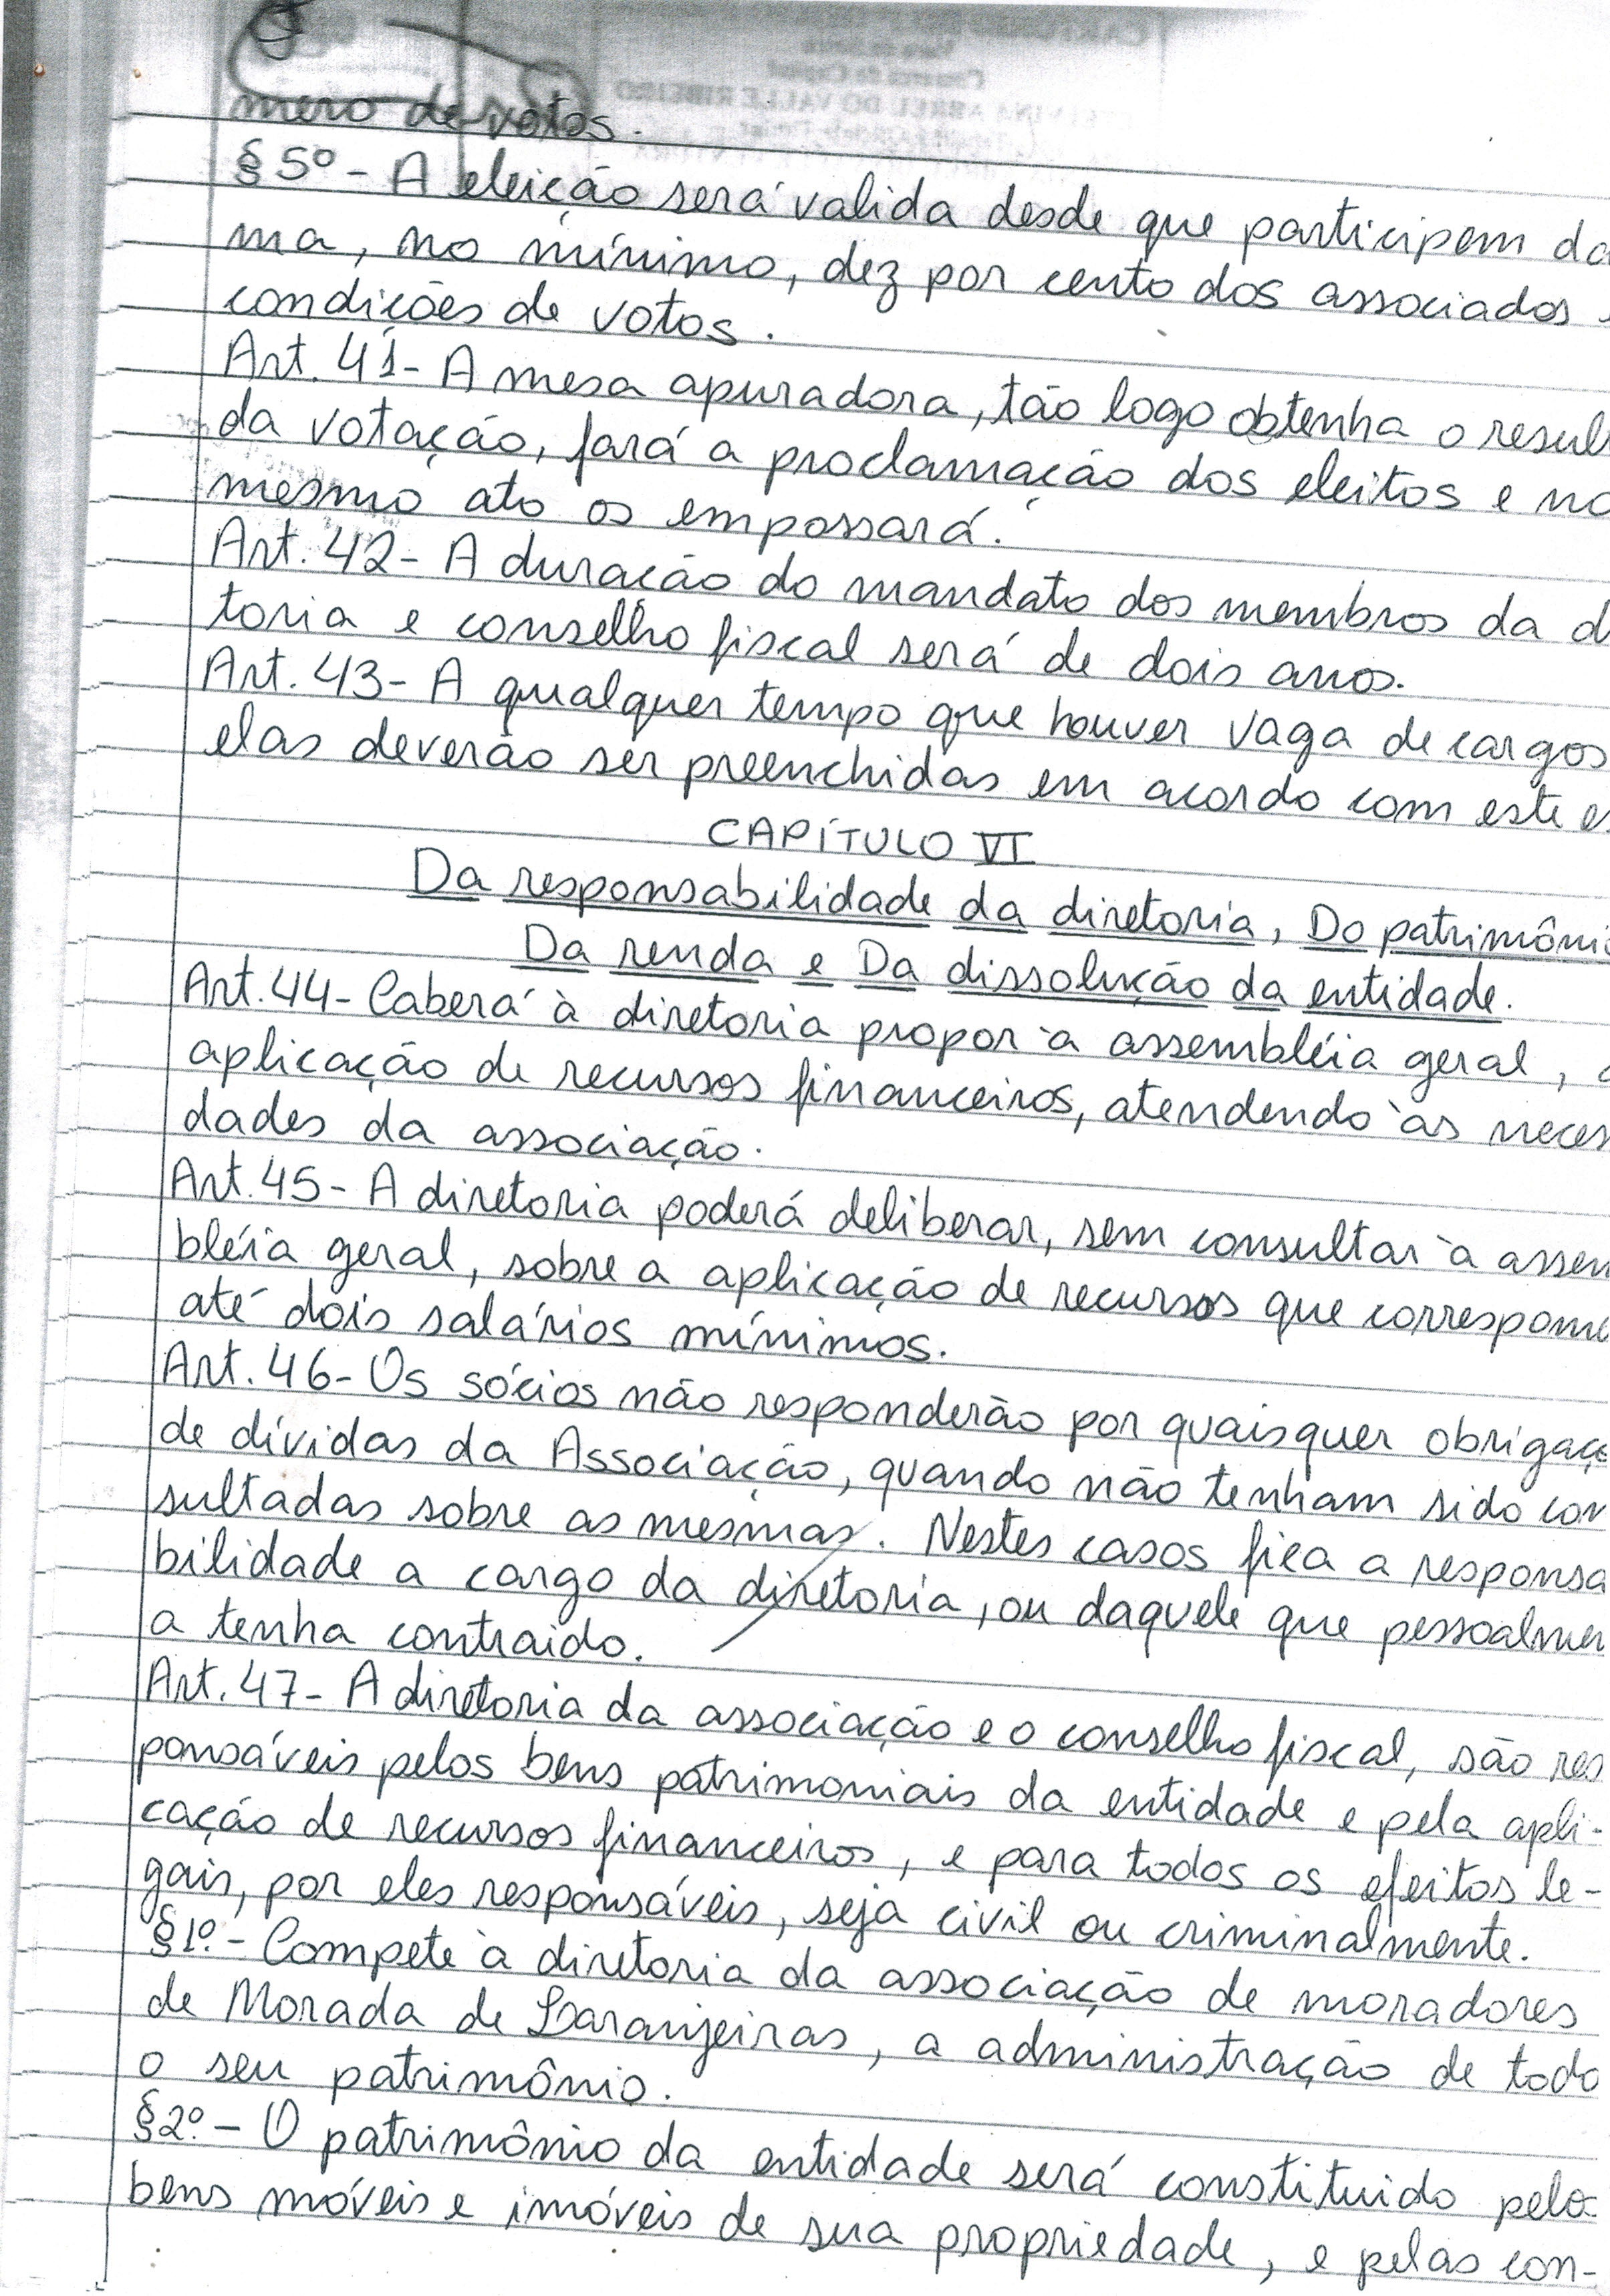 mero de votos.
§ 5º - A eleição será valida desde que participem da
ma, no mínimo, dez por cento dos associados
condições de votos.
Art. 41 - A mesa apuradora, tão logo obtenha o resul
da votação, fará a proclamação dos eleitos e no
mesmo ato os empossará.
Art. 42 - A duração do mandato dos membros da d
toria e conselho fiscal será de dois anos.
Art. 43 - A qualquer tempo que houver vaga de cargos
elas deverão ser preenchidas em acordo com este e
CAPÍTULO VI
Da responsabilidade da diretoria, Do patrimôni
Da renda e Da dissolução da entidade.
Art. 44 - Caberá à diretoria propor à assembléia geral, a
aplicação de recursos financeiros, atendendo às neces
dades da associação.
Art. 45 - A diretoria poderá deliberar, sem consultar à assem
bléia geral, sobre a aplicação de recursos que correspond
até dois salários mínimos.
Art. 46 - Os sócios não responderão por quaisquer obrigaçõ
de dívidas da Associação, quando não tenham sido con
sultadas sobre as mesmas. Nestes casos fica a responsa
bilidade a cargo da diretoria, ou daquele que pessoalmen
a tenha contraido.
Art. 47 - A diretoria da associação e o conselho fiscal, são res
ponsáveis pelos bens patrimoniais da entidade e pela apli-
cação de recursos financeiros, e para todos os efeitos le-
gais, por eles responsáveis, seja civil ou criminalmente.
§ 1º. - Compete à diretoria da associação de moradores
de Morada de Laranjeiras, a administração de todo
o seu patrimônio.
§ 2º. - O patrimônio da entidade será constituido pelo
bens móveis e imóveis de sua propriedade, e pelas con-